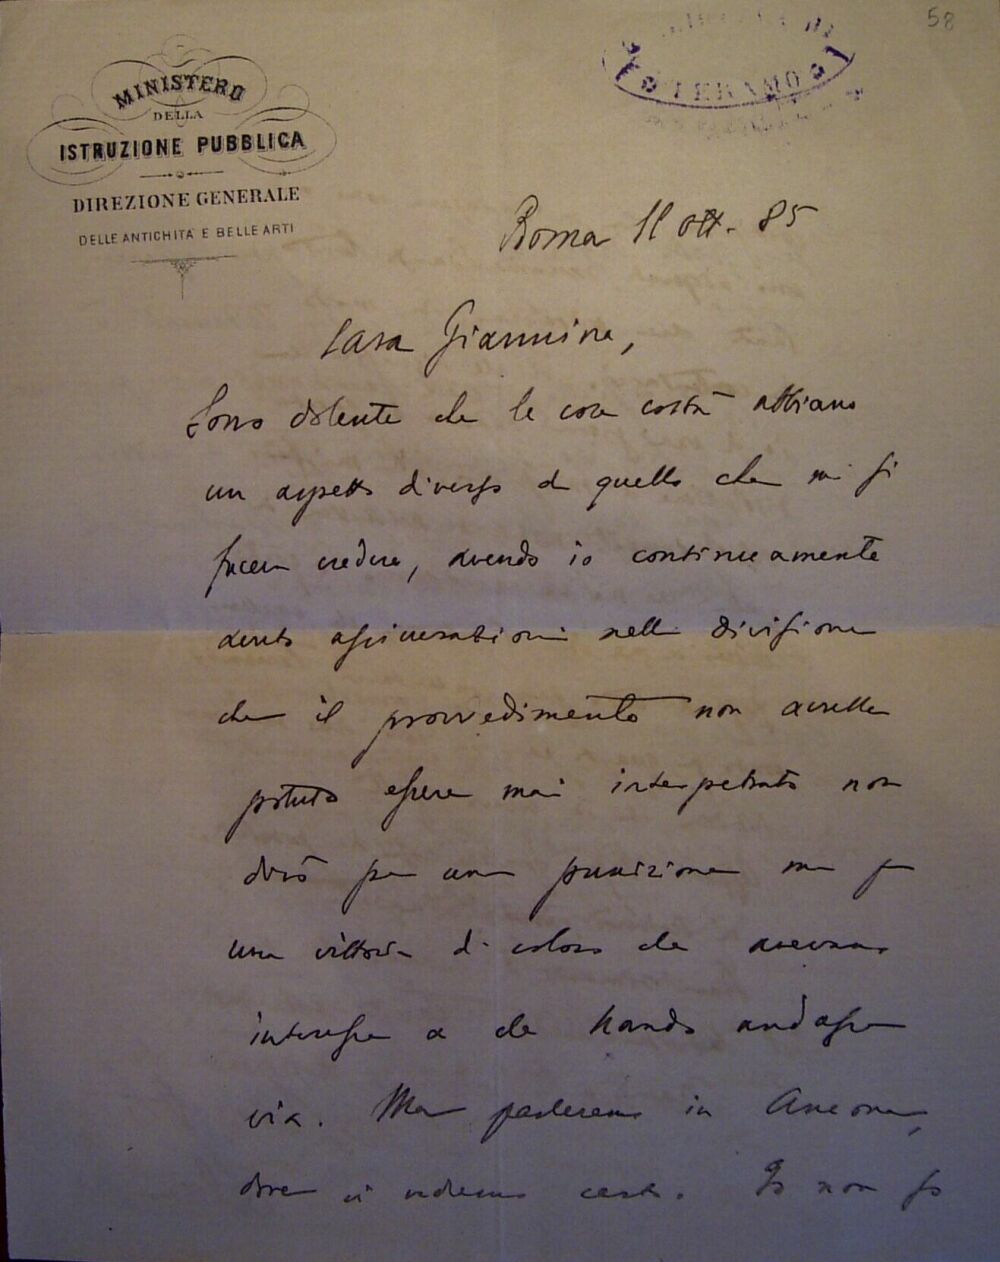 58
MINISTERO
DELLA
ISTRUZIONE PUBBLICA
DIREZIONE GENERALE
DELLE ANTICHITÀ E BELLE ARTI
TERAMO
Roma 11 ott. 85
Cara Giannina,
Sono dolente che le cose costà abbiano
un aspetto diverso da quello che mi si
faceva credere, avendo io continuamente
avuto assicurazioni nella divisione
che il provvedimento non avrebbe
potuto essere mai interpretato non
dirò per una punizione ma per
una vittoria di coloro che avevano
interesse a che andasse
via. Ma parleremo in Ancona,
dove ci vedremo certo. Io non so